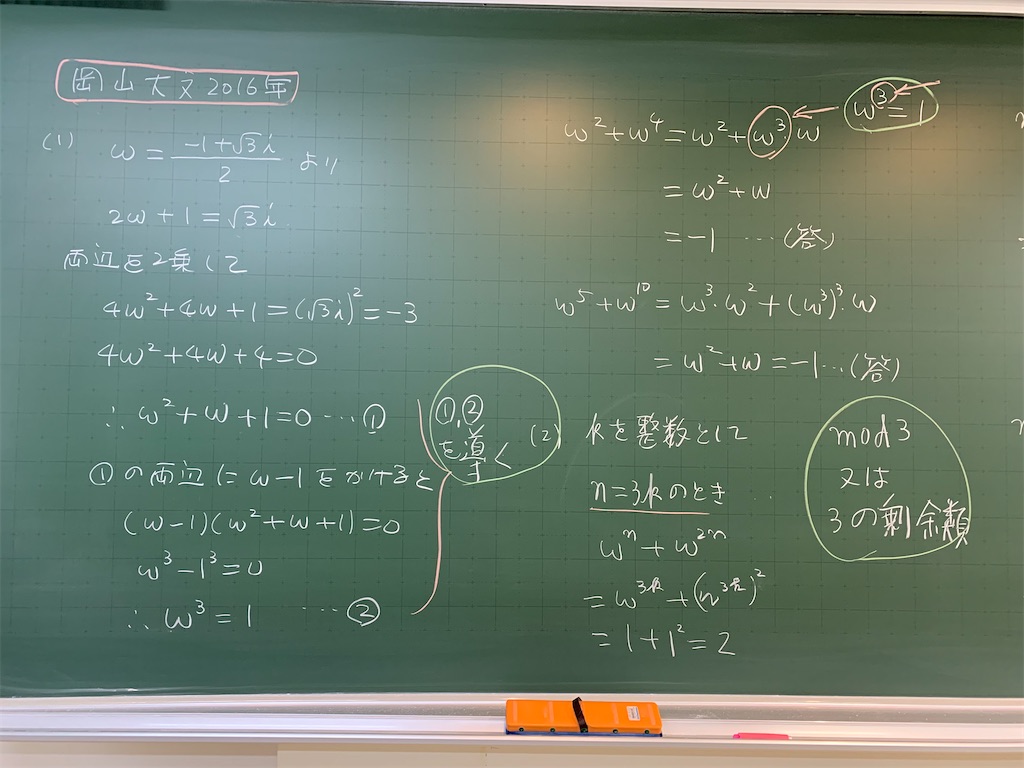 岡山大文2016年
(1) ω = \frac{-1+√3i}{2} より
2ω+1=√3i
両辺を2乗して
4ω²+4ω+1=(√3i)²=-3
4ω²+4ω+4=0
∴ ω²+ω+1=0 … ①
①の両辺にω-1をかけると
(ω-1)(ω²+ω+1)=0
ω³-1³=0
∴ ω³=1 … ②
①,②
を導く
ω²+ω⁴=ω²+ω³ω
ω³=1
=ω²+ω
=-1 …(答)
ω⁵+ω¹⁰=ω³・ω²+(ω³)³・ω
=ω²+ω=-1…(答)
(2) kを整数として
n=3kのとき
ωⁿ+ω²ⁿ
=ω³ᵏ+(ω³ᵏ)²
=1+1²=2
mod3
又は
3の剰余類